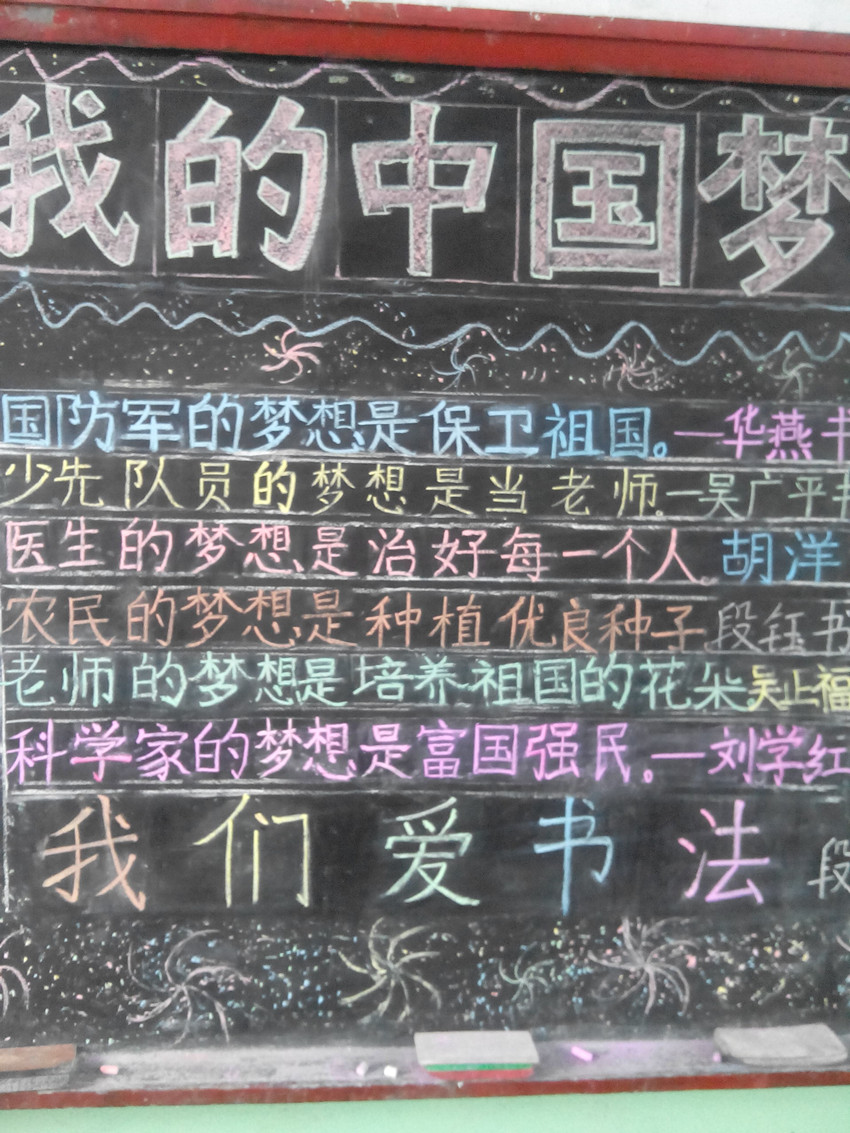 我的中国梦
国防军的梦想是保卫祖国。—华燕书
少先队员的梦想是当老师。—吴广平书
医生的梦想是治好每一个人。胡洋
农民的梦想是种植优良种子段钰书
老师的梦想是培养祖国的花朵。吴止福
科学家的梦想是富国强民。—刘学红
我们爱书法 段